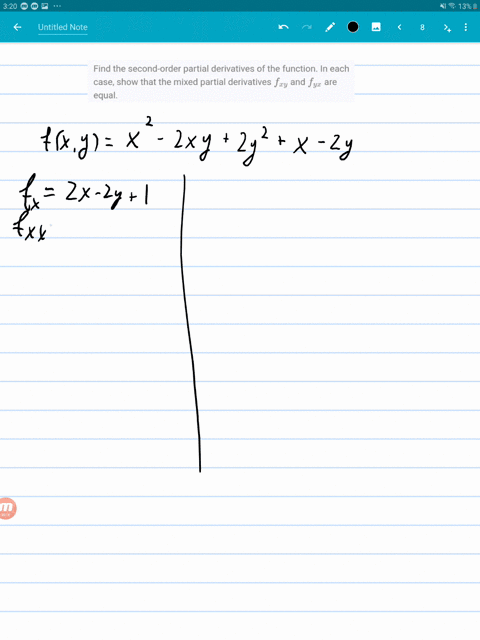 3:20
13%
Untitled Note
8
Find the second-order partial derivatives of the function. In each
case, show that the mixed partial derivatives f_xy and f_yx are
equal.
f(x,y) = x² - 2xy + 2y² + x - 2y
f_x = 2x - 2y + 1
f_xx